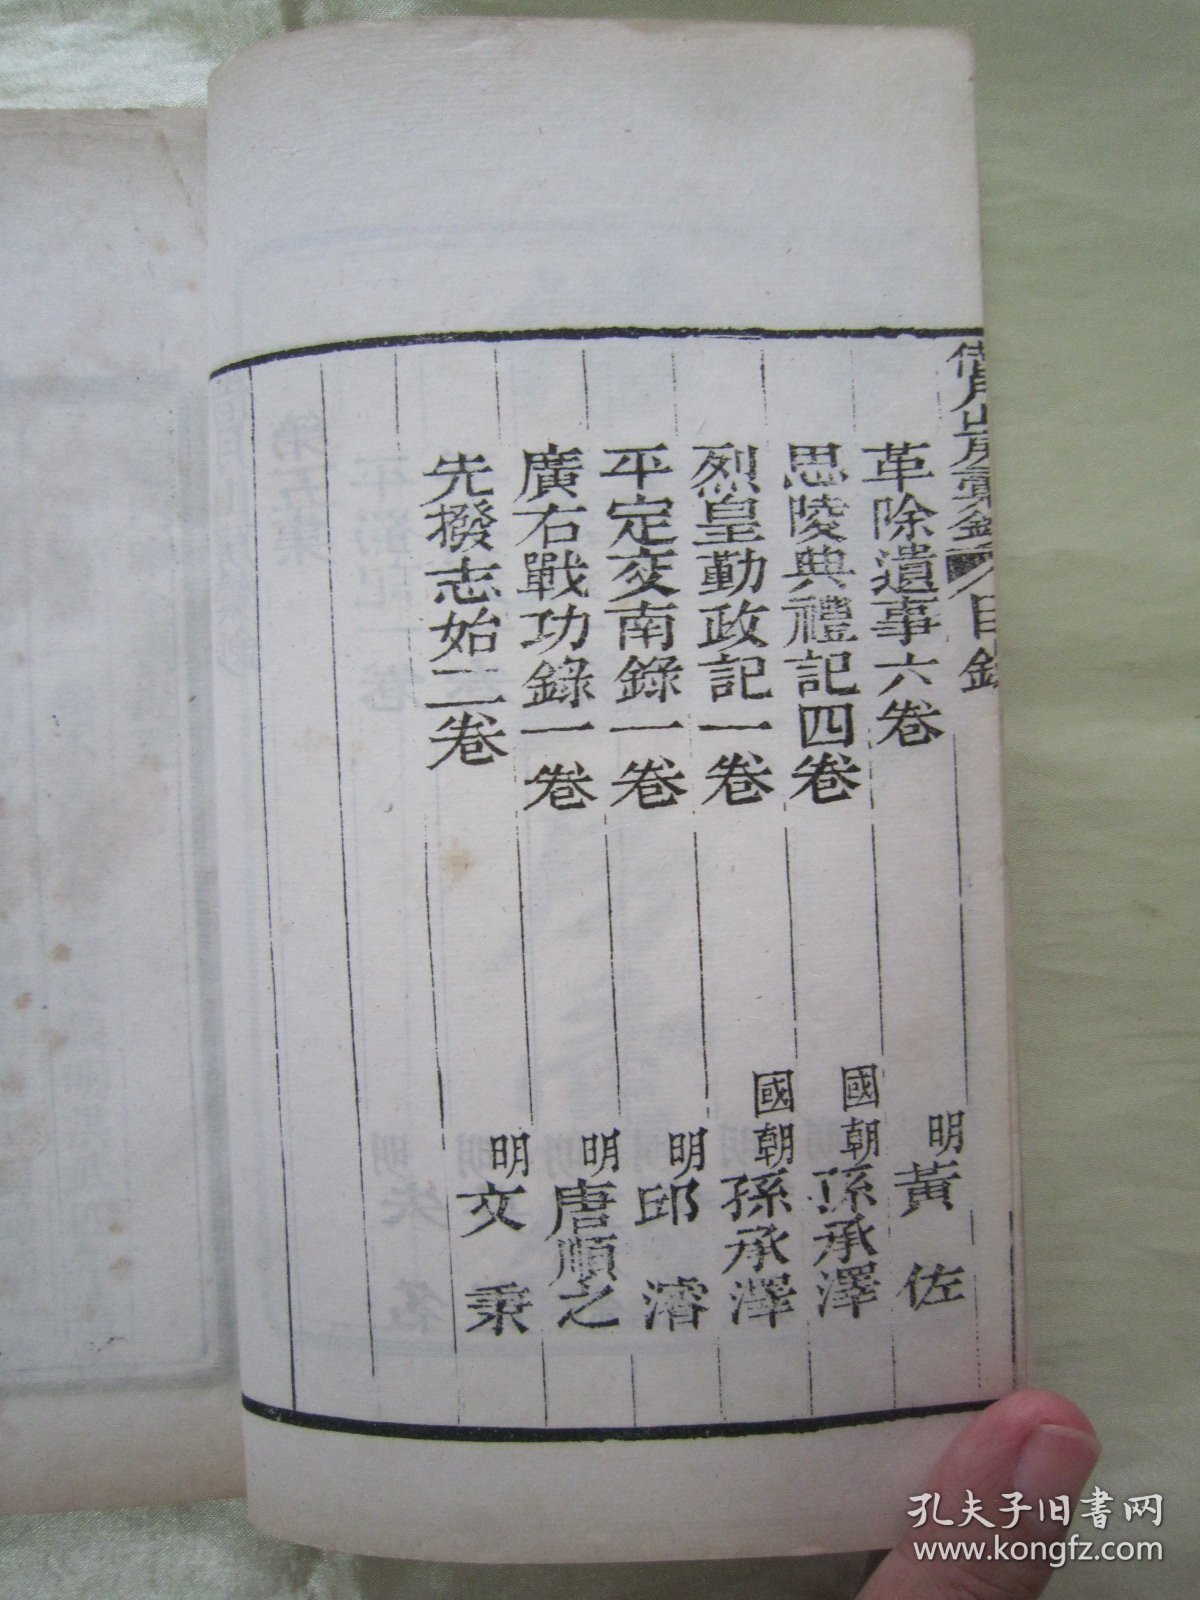 借月山房彙鈔 目錄
革除遺事六卷 明黃佐
思陵典禮記四卷 國朝孫承澤
烈皇勤政記一卷 國朝孫承澤
平定交南錄一卷 明邱濬
廣右戰功錄一卷 明唐順之
先撥志始二卷 明文秉
孔夫子旧书网
www.kongfz.com